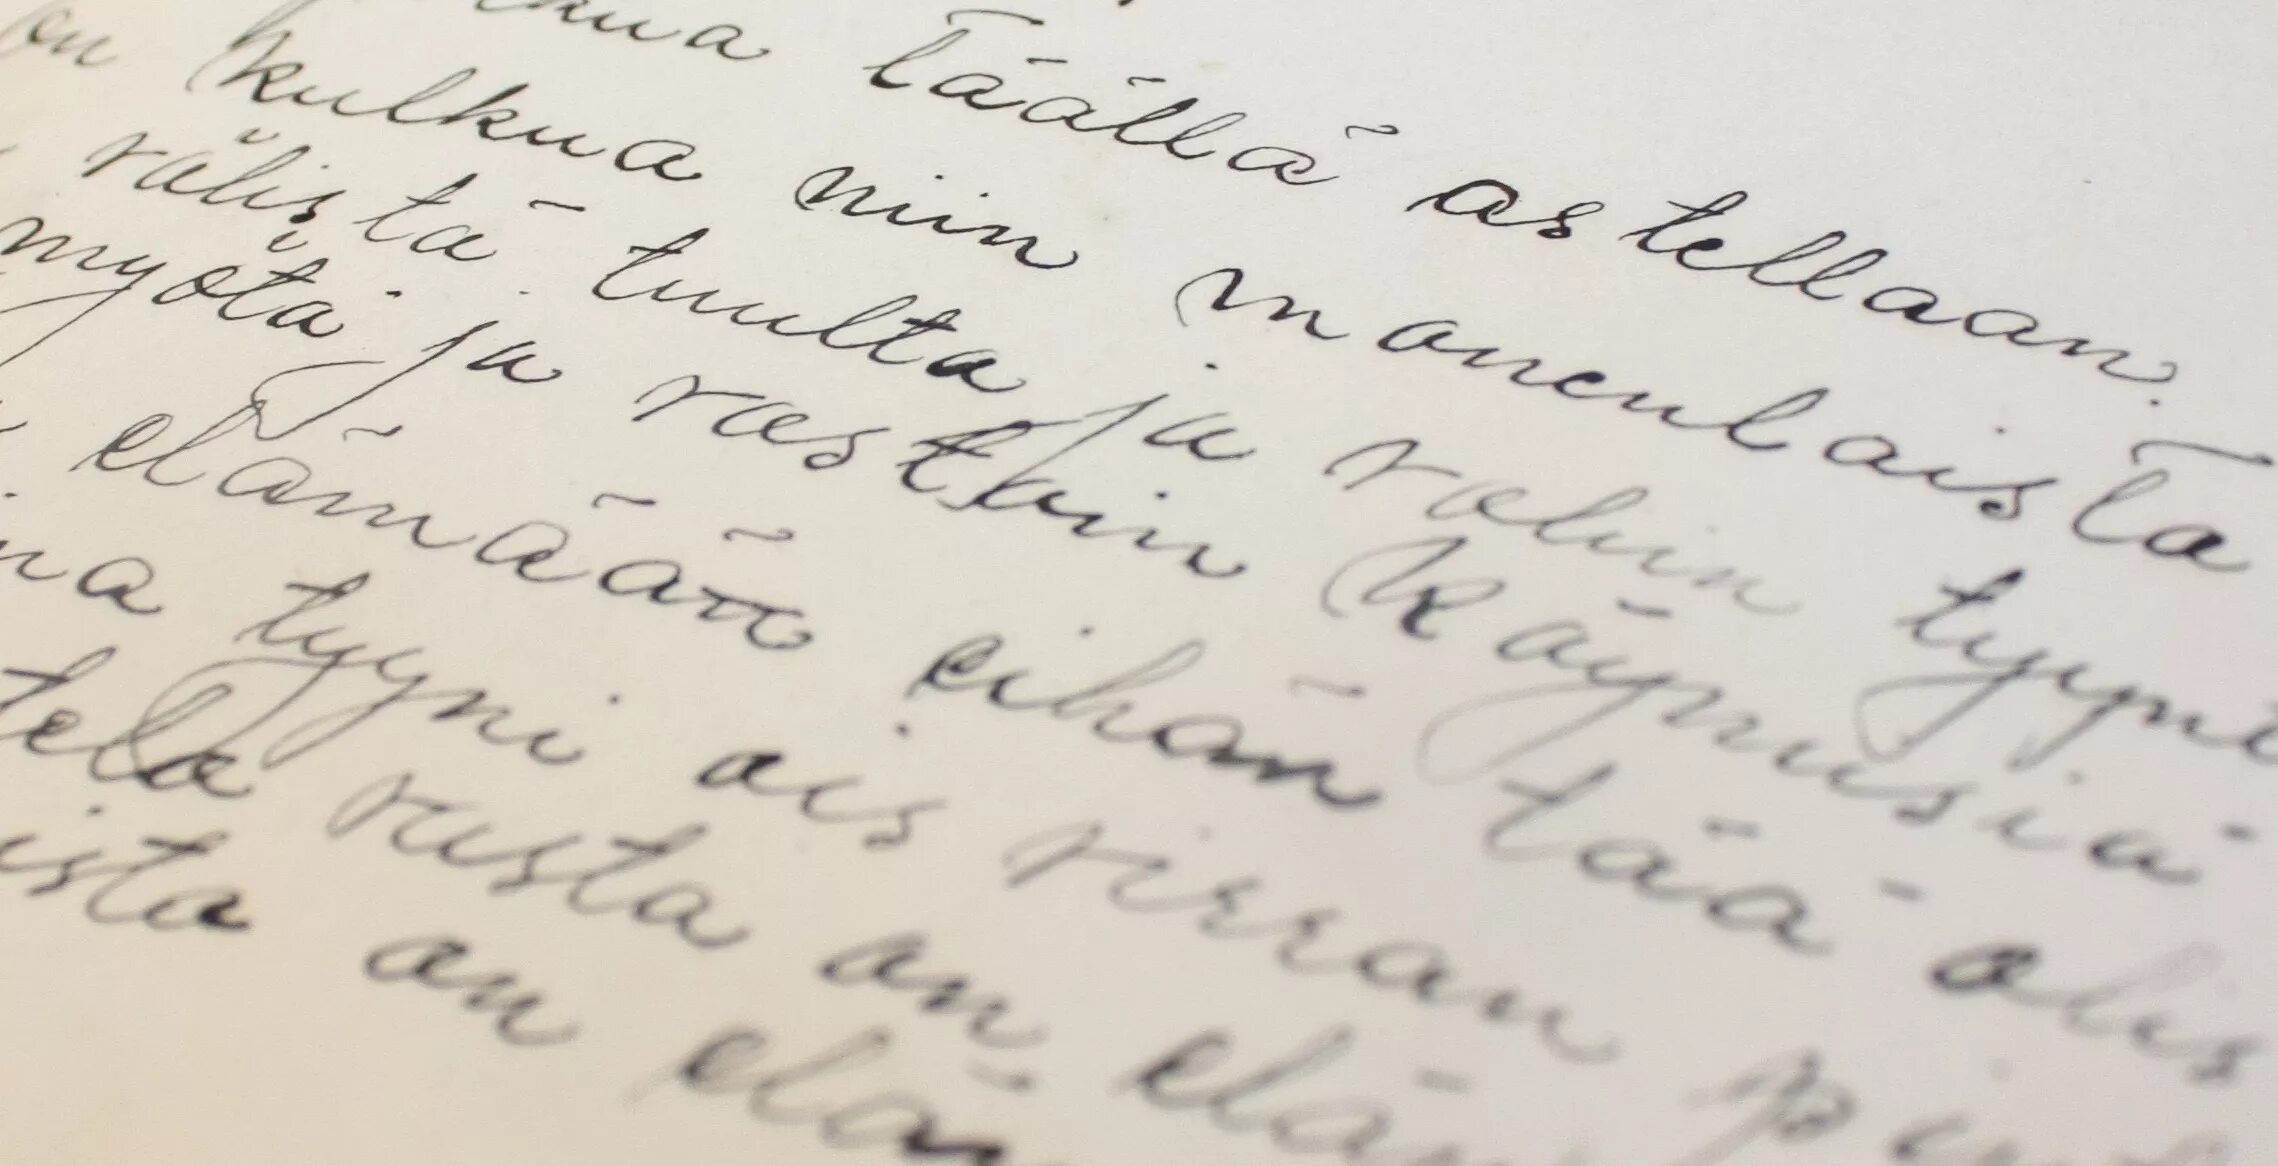 kua täällä astellaan.
on kulkua niin moneulaista
välistä tuulta ja valin tyyni
myötä ja vastoin käymisiä
elämään eihän tää olis
na tyyni ois virran
tela vasta on elä
ista on elä